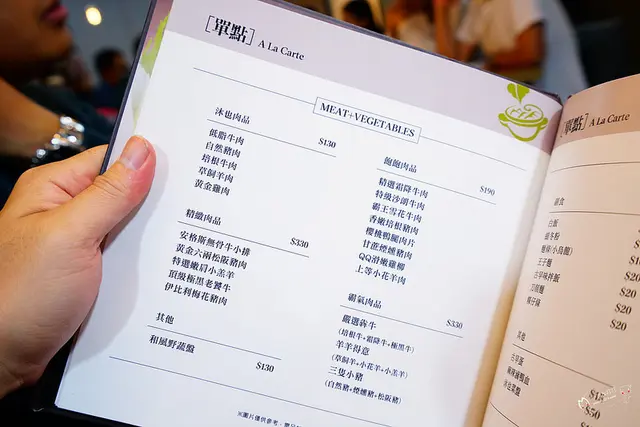 [單點] A La Carte
MEAT+VEGETABLES
沐也肉品 $130
低脂牛肉
自然豬肉
培根牛肉
草飼羊肉
黃金雞肉
精緻肉品 $330
安格斯無骨牛小排
黃金六兩松阪豬肉
特選嫩肩小羔羊
頂級極黑老饕牛
伊比利梅花豬肉
其他
和風野蔬盤 $130
飽飽肉品 $190
精選霜降牛肉
特級沙朗牛肉
霸王雪花牛肉
香嫩培根豬肉
櫻桃鴨腿肉片
甘蔗煙燻豬肉
QQ滑嫩雞柳
上等小花羊肉
霸氣肉品 $330
嚴選犇牛
(培根牛+霜降牛+極黑牛)
羊羊得意
(草飼羊+小花羊+小羔羊)
三隻小豬
(自然豬+煙燻豬+松阪豬)
※圖片僅供參考,
[單點] A La Carte
副食
白飯
王子麵
$20
$20
$20
其他
$50